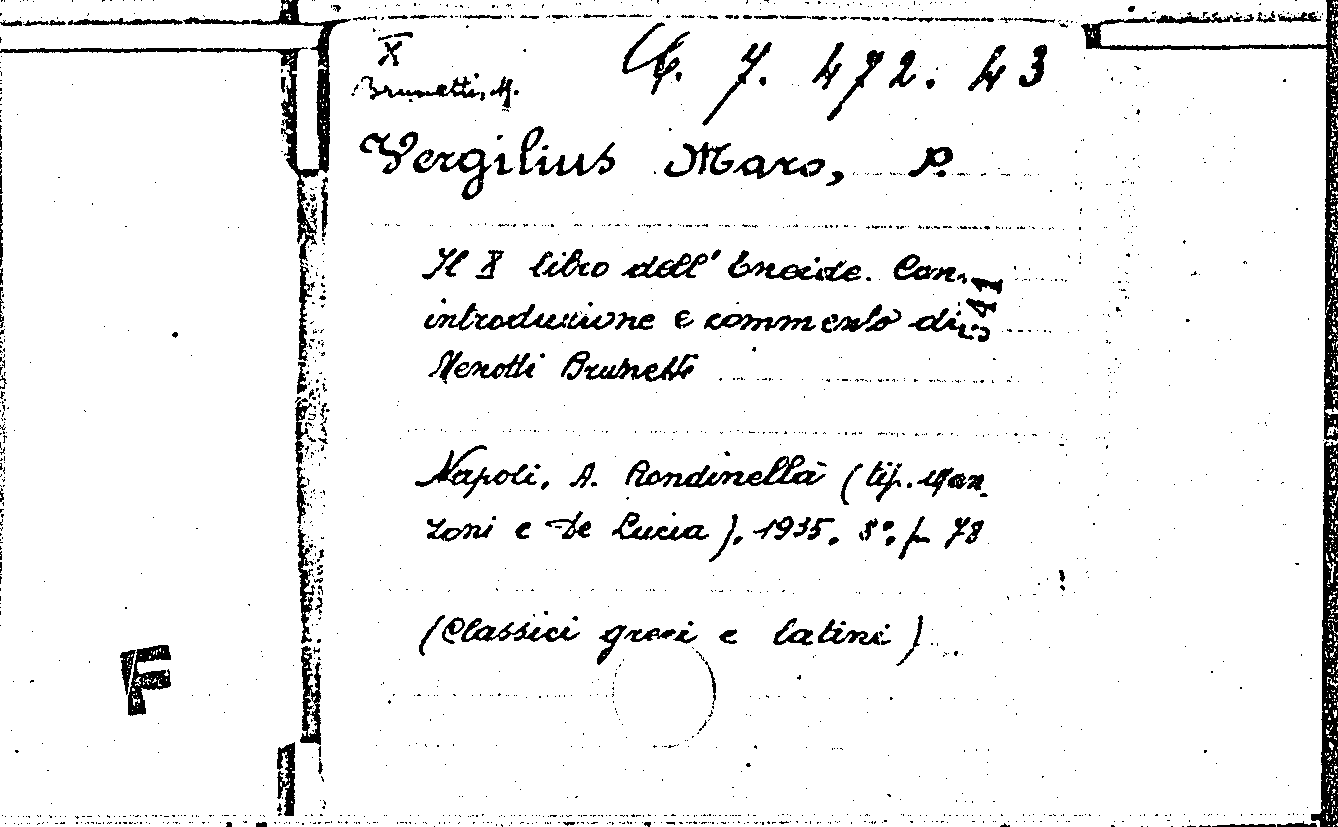 X C. 7. 472. 43
Brunetti, M.
Vergilius Maro, P.
Il X libro dell' Eneide. Con
introduzione e commento di
Menotti Brunetti
541
Napoli, A. Rondinella (tip. Man-
zoni e De Lucia). 1935. 8º. p. 78
(Classici greci e latini)
F